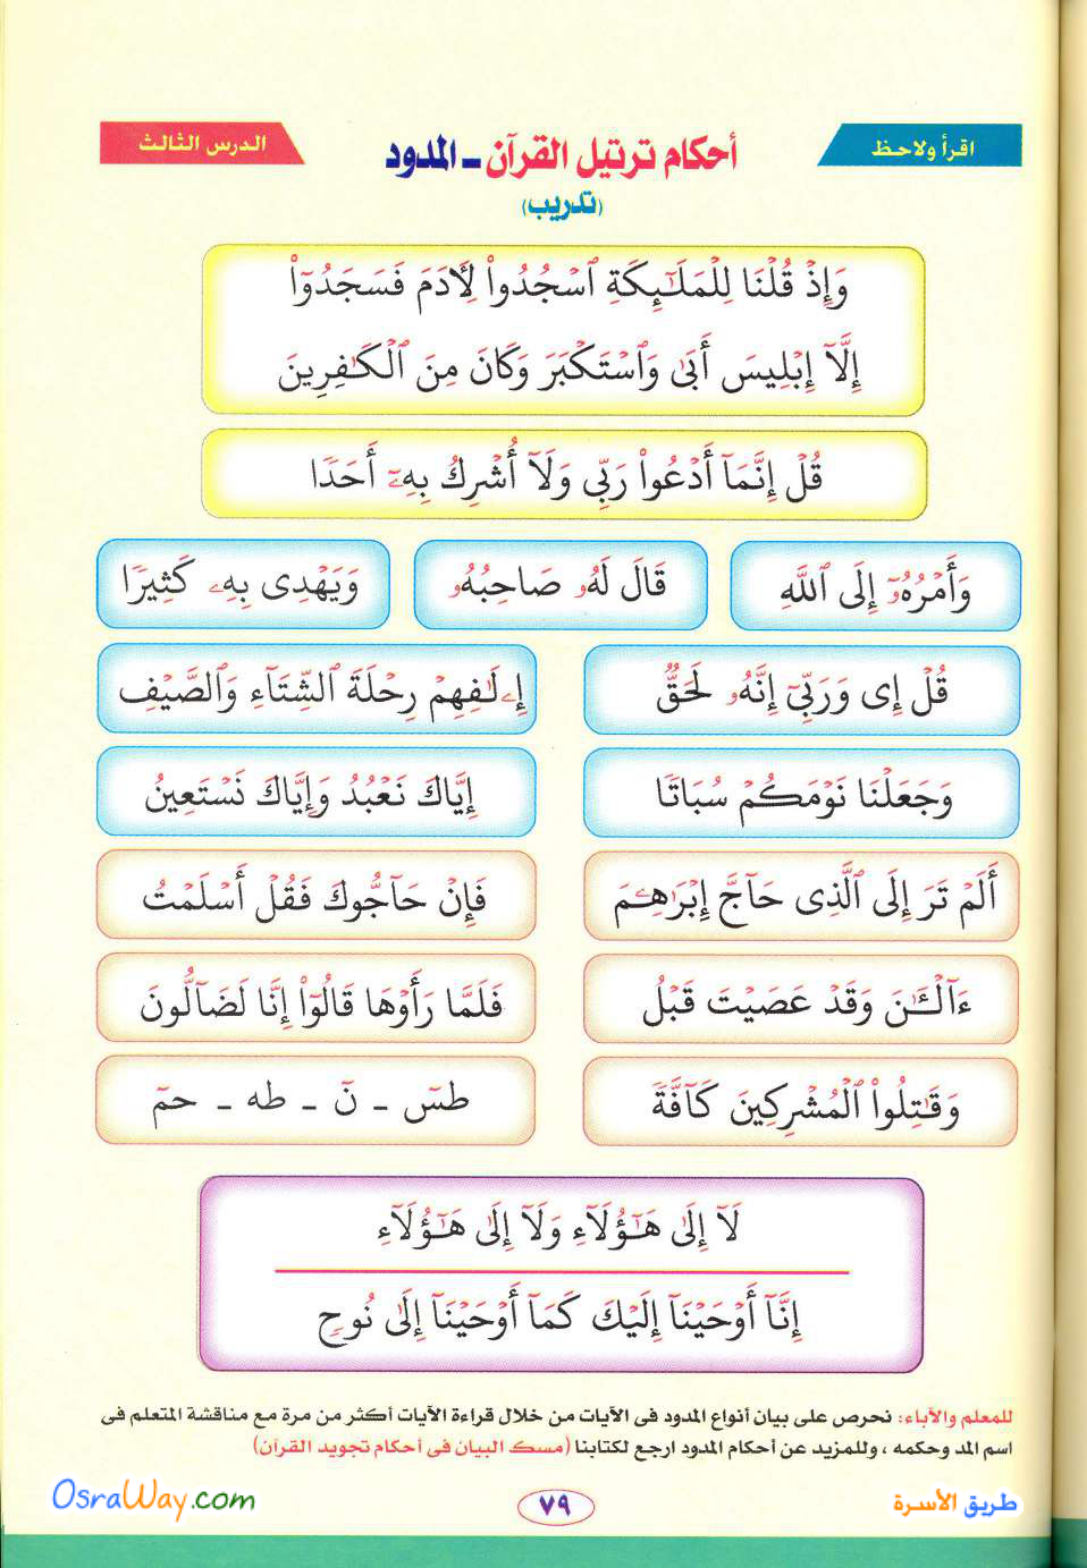 اقرأ ولاحظ
أحكام ترتيل القرآن - المدود
الدرس الثالث
(تدريب)
وَإِذْ قُلْنَا لِلْمَلَـٰٓئِكَةِ ٱسْجُدُوا۟ لِـَٔادَمَ فَسَجَدُوٓا۟
إِلَّآ إِبْلِيسَ أَبَىٰ وَٱسْتَكْبَرَ وَكَانَ مِنَ ٱلْكَـٰفِرِينَ
قُلْ إِنَّمَآ أَدْعُوا۟ رَبِّى وَلَآ أُشْرِكُ بِهِۦٓ أَحَدًا
وَأَمْرُهُۥٓ إِلَى ٱللَّهِ
قَالَ لَهُۥ صَاحِبُهُۥ
وَيَهْدِى بِهِۦ كَثِيرًا
قُلْ إِى وَرَبِّىٓ إِنَّهُۥ لَحَقٌّ
إِۦلَـٰفِهِمْ رِحْلَةَ ٱلشِّتَآءِ وَٱلصَّيْفِ
وَجَعَلْنَا نَوْمَكُمْ سُبَاتًا
إِيَّاكَ نَعْبُدُ وَإِيَّاكَ نَسْتَعِينُ
أَلَمْ تَرَ إِلَى ٱلَّذِى حَآجَّ إِبْرَٰهِـۧمَ
فَإِنْ حَآجُّوكَ فَقُلْ أَسْلَمْتُ
ءَآلْـَٔـٰنَ وَقَدْ عَصَيْتَ قَبْلُ
فَلَمَّا رَأَوْهَا قَالُوٓا۟ إِنَّا لَضَآلُّونَ
وَقَـٰتِلُوا۟ ٱلْمُشْرِكِينَ كَآفَّةً
طسٓ - نٓ - طه - حمٓ
لَآ إِلَىٰ هَـٰٓؤُلَآءِ وَلَآ إِلَىٰ هَـٰٓؤُلَآءِ
إِنَّآ أَوْحَيْنَآ إِلَيْكَ كَمَآ أَوْحَيْنَآ إِلَىٰ نُوحٍ
للمعلم والآباء: نحرص على بيان أنواع المدود فى الآيات من خلال قراءة الآيات أكثر من مرة مع مناقشة المتعلم فى
اسم المد وحكمه ، وللمزيد عن أحكام المدود ارجع لكتابنا (مسك البيان فى أحكام تجويد القرآن)
طريق الأسرة
٧٩
OsraWay.com